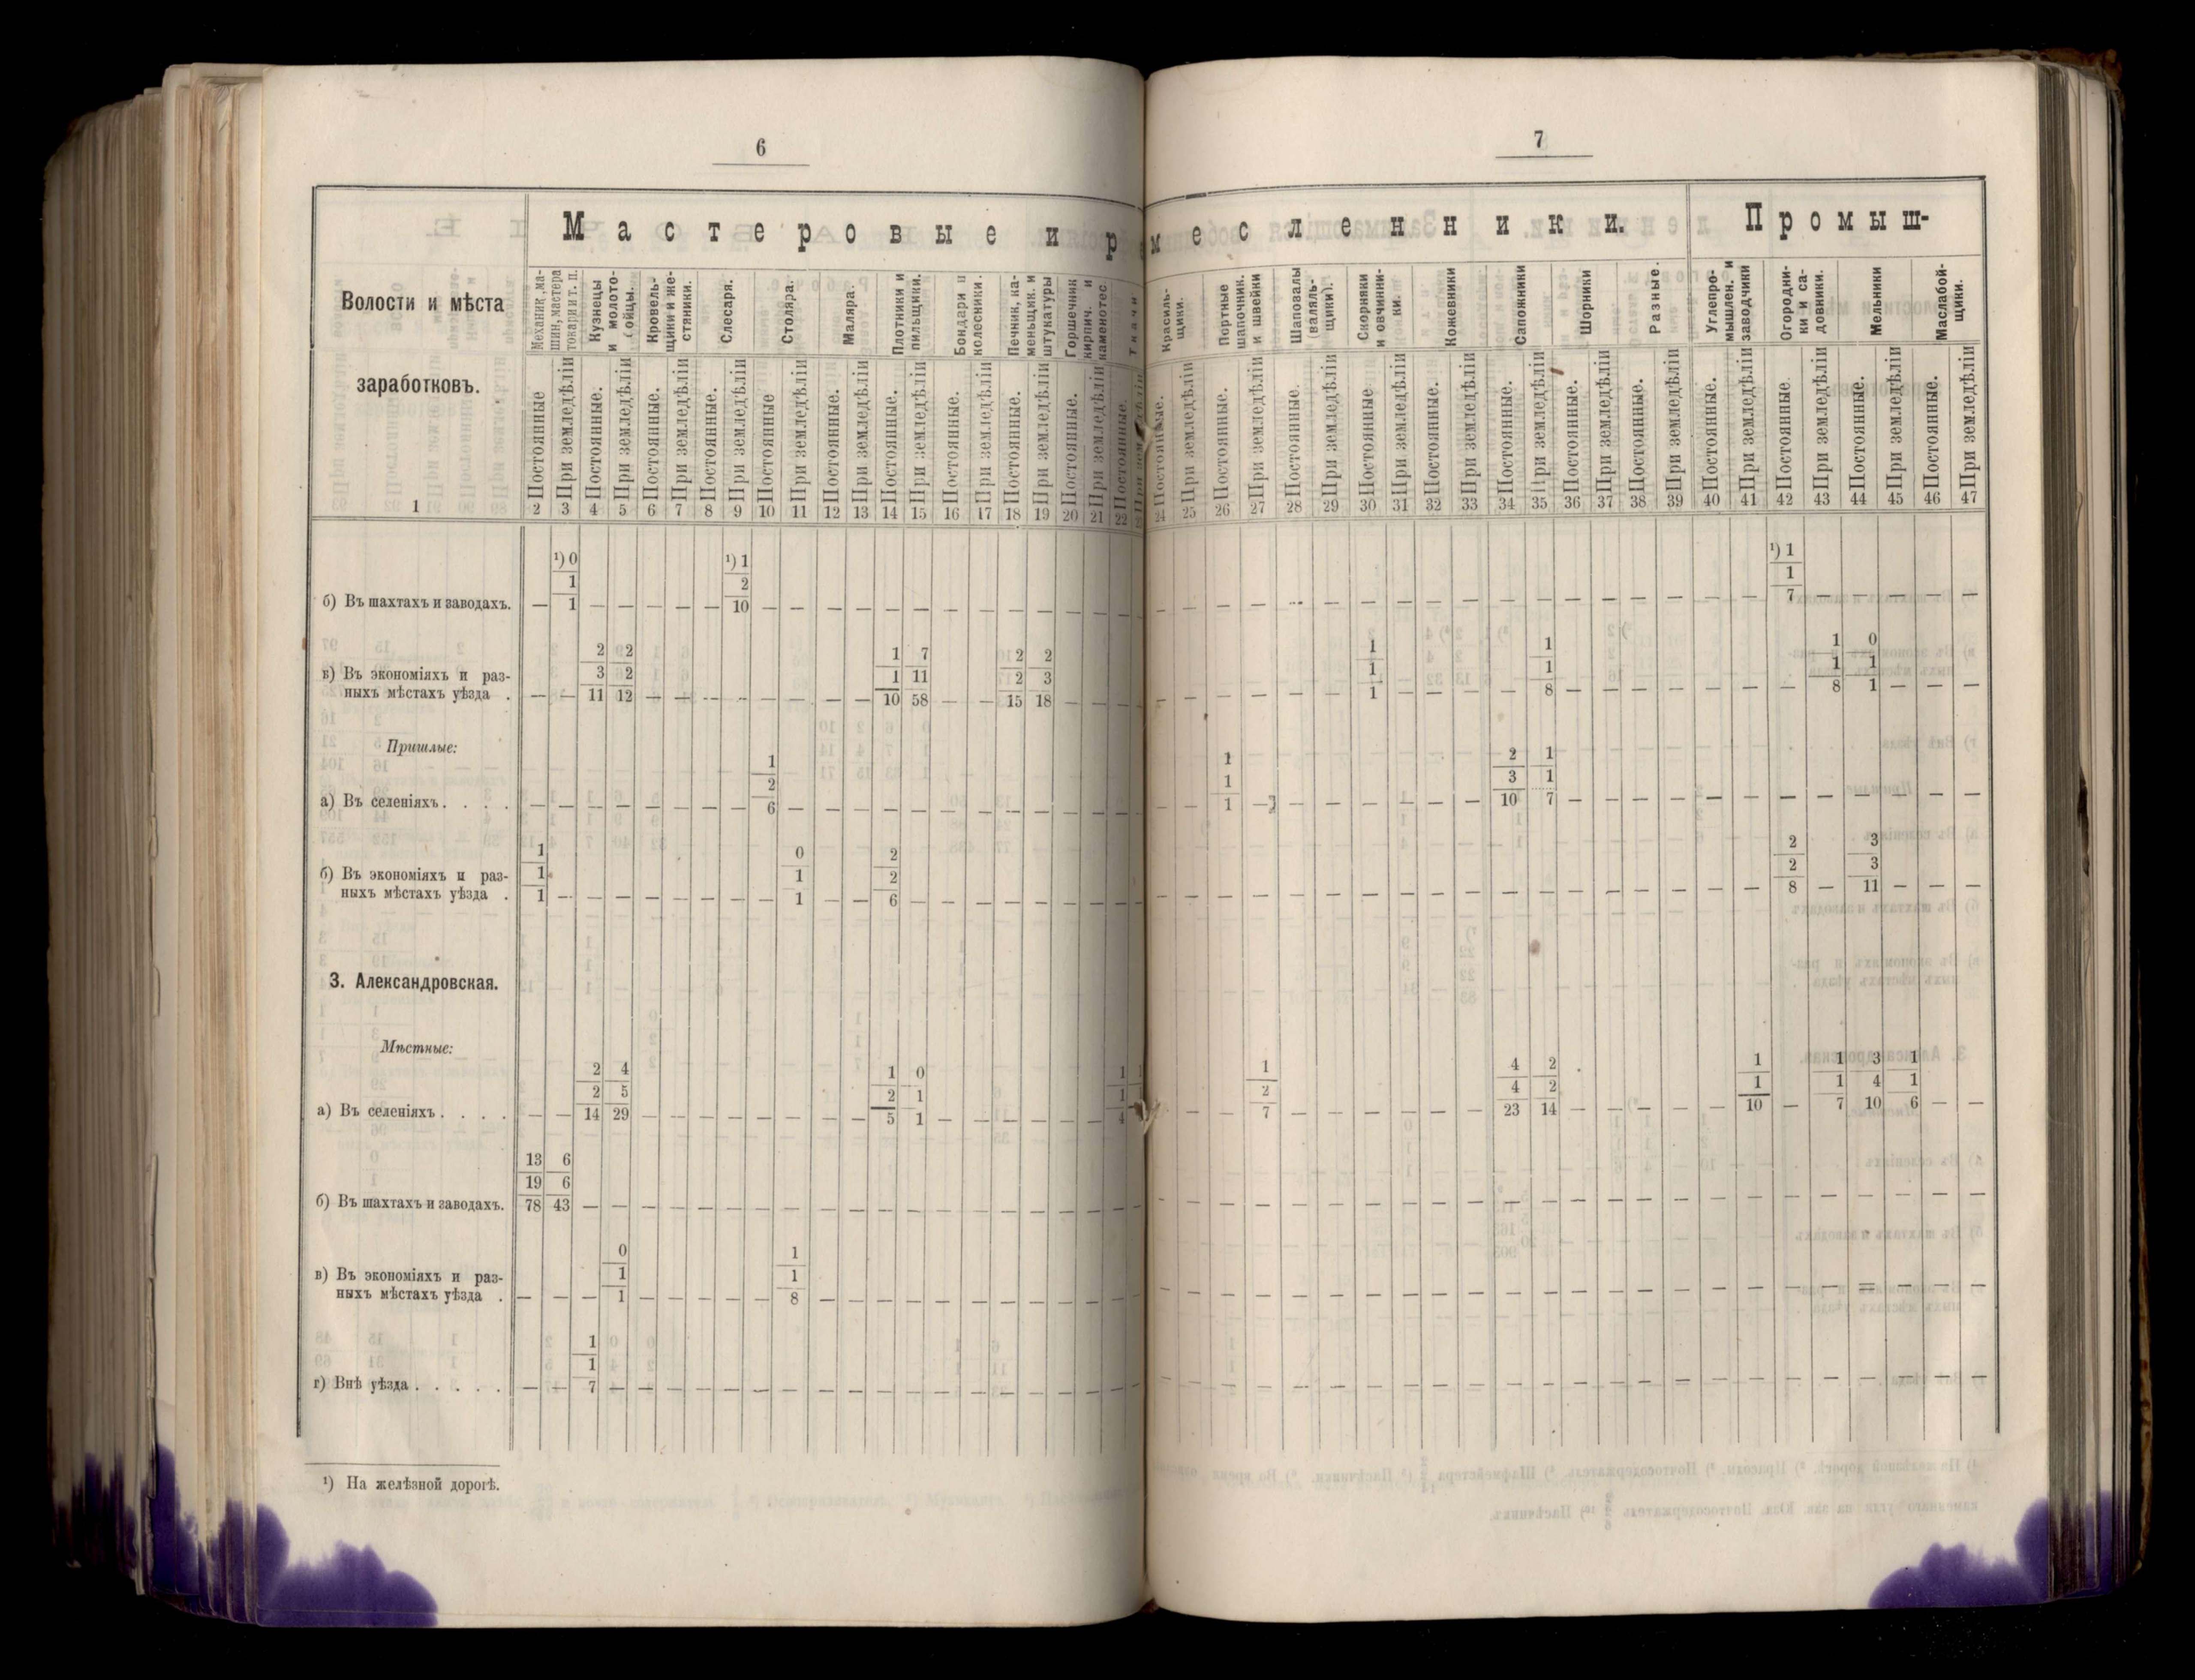 6
7
Мастеровые и ремесленники.
Промыш-
Волости и мѣста
заработковъ.
Механик., ма-
шин., мастера
токари и т. п.
Кузнецы
и молото-
бойцы.
Кровель-
щики и же-
стяники.
Слесаря.
Столяра.
Маляра.
Плотники и
пильщики.
Бондари и
колесники.
Печник., ка-
меньщик. и
штукатуры
Горшечник
кирпич. и
каменотес.
Ткачи
Красиль-
щики.
Портные
шапочник.
и швейки
Шаповалы
(валяль-
щики).
Скорняки
и овчинни-
ки.
Кожевники
Сапожники
Шорники
Разные.
Углепро-
мышлен. и
заводчики
Огородни-
ки и са-
довники.
Мельники
Маслабой-
щики.
Постоянные
При земледѣліи
Постоянные.
При земледѣліи
Постоянные.
При земледѣліи
Постоянные.
При земледѣліи
Постоянные
При земледѣліи
Постоянные.
При земледѣліи
Постоянные.
При земледѣліи
Постоянные.
При земледѣліи
Постоянные.
При земледѣліи
Постоянные.
При земледѣліи
Постоянные.
При земледѣліи
Постоянные.
При земледѣліи
Постоянные.
При земледѣліи
Постоянные.
При земледѣліи
Постоянные
При земледѣліи
Постоянные.
При земледѣліи
Постоянные.
При земледѣліи
Постоянные.
При земледѣліи
Постоянные.
При земледѣліи
Постоянные.
При земледѣліи
Постоянные.
При земледѣліи
Постоянные.
При земледѣліи
Постоянные.
При земледѣліи
1 2 3 4 5 6 7 8 9 10 11 12 13 14 15 16 17 18 19 20 21 22 23 24 25 26 27 28 29 30 31 32 33 34 35 36 37 38 39 40 41 42 43 44 45 46 47
¹) 0 ¹) 1 ¹) 1
1 2 1
б) Въ шахтахъ и заводахъ. — 1 — — — — — 10 — — — — — — — — — — — — — — — — — — — — — — — — — — — — — — — 7 — — — — —
2 2 1 7 2 2 1 1 1 0
3 2 1 11 2 3 1 1 1 1
в) Въ экономіяхъ и раз-
ныхъ мѣстахъ уѣзда . — — 11 12 — — — — — — — — 10 58 — — 15 18 — — — — — — — — — 1 — — — 8 — — — — — — — 8 1 — — —
Пришлые:
1 1 2 1
2 1 3 1
а) Въ селеніяхъ. . . . — — — — — — — — 6 — — — — — — — — — — — — — — 1 — — — — — — — 10 7 — — — — — — — — — — — —
1 0 2 2 3
1 1 2 2 3
б) Въ экономіяхъ и раз-
ныхъ мѣстахъ уѣзда . 1 — — — — — — — — 1 — — 6 — — — — — — — — — — — — — — — — — — — — — — — — — 8 — 11 — — —
3. Александровская.
Мѣстные:
2 4 1 0 1 1 1 4 2 1 1 3 1
2 5 2 1 1 2 4 2 1 1 4 1
а) Въ селеніяхъ. . . . — — 14 29 — — — — — — — — 5 1 — — — — — — 4 — — — 7 — — — — — — 23 14 — — — — — 10 — 7 10 6 — —
13 6
19 6
б) Въ шахтахъ и заводахъ. 78 43 — — — — — — — — — — — — — — — — — — — — — — — — — — — — — — — — — — — — — — — — — —
0 1
1 1
в) Въ экономіяхъ и раз-
ныхъ мѣстахъ уѣзда . — — — 1 — — — — — 8 — — — — — — — — — — — — — — — — — — — — — — — — — — — — — — — — — —
1
1
г) Внѣ уѣзда . . . . . — — 7 — — — — — — — — — — — — — — — — — — — — — — — — — — — — — — — — — — — — — — — — —
¹) На желѣзной дорогѣ.